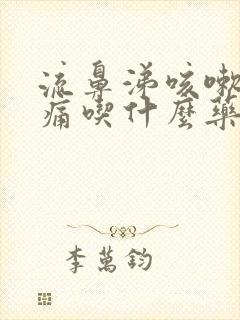 流鼻涕咳嗽
痛喫什麼藥
李萬鈞